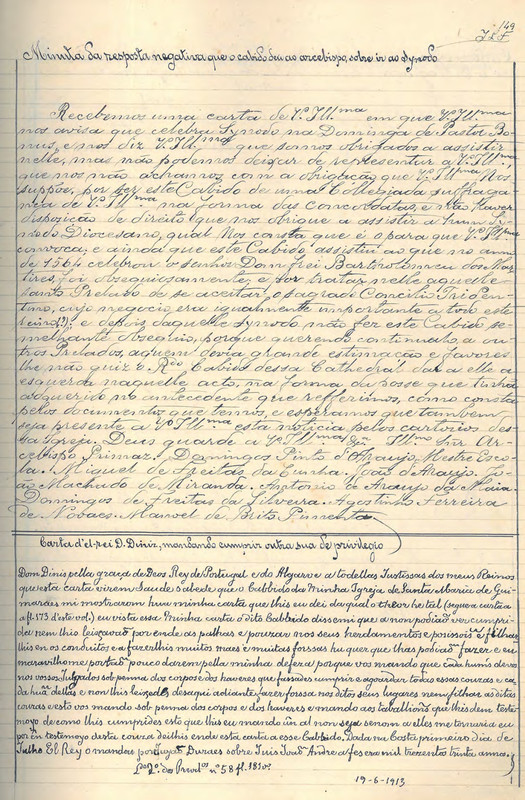 149
Minuta da resposta negativa que o cabido deu ao arcebispo, sobre ir ao synodo
Recebemos uma carta de Vª Illma em que Vª Illma
nos avisa que celebra Synodo na Dominga de Pastor Bo-
nus, e nos diz Vª Illma que somos obrigados a assistir
nelle, mas não podemos deixar de representar a Vª Illma
que nos não achamos com a obrigação que Vª Illma nos
suppõe, por ser este Cabido de uma Collegiada suffraga-
nea de Vª Illma na forma das Concordatas, e não haver
disposição de direito que nos obrigue a assistir a hum Si-
nodo Diocesano, qual nos consta que é o para que Vª Illma
convoca, e ainda que este Cabido assistiu ao que no anno
de 1564 celebrou o senhor Dom frei Bartholomeu dos Mar-
tires, foi obsequiosamente, e por tratar nelle aquelle
santo Prelado de se aceitar o sagrado Concilio Triden-
tino, cujo negocio era igualmente importante a todo este
reino(?); e depois daquelle Synodo não fez este Cabido se-
melhante obsequio, porque querendo continual-o a ou-
tros Prelados, a quem devia grande estimação e favores
lhe não quiz o Rdo Cabido dessa Cathedral dar a elle a
esquerda naquelle acto, na forma da posse que tinha
adquerido no antecedente que refferimos, como consta
pelos documentos que temos, e esperamos que tambem
seja presente a Vª Illma esta noticia pelos cartorios des-
sa Igreja. Deus guarde a Vª Illma Illmo Snr Ar-
cebispo Primaz. Domingos Pinto d'Araujo, Mestre Esco-
la. Miguel de Freitas da Cunha. João d'Araujo. Jo-
ão Machado de Miranda. Antonio de Araujo da Maia.
Domingos de Freitas da Silveira. Agostinho Ferreira
de Novaes. Manoel de Brito Pimenta
Carta d'el-rei D. Diniz, mandando cumprir outra sua de privilegio
Dom Dinis pella graça de Deos, Rey de Portugal e do Algarve a todellas Justissas dos meus Reinos
que esta carta virem Saude sabede que o Cabbido da Minha Igreja de Santa Maria de Gui-
marães mi mostrarom huma minha carta que lhis eu dei da qual o theor he tal (segue a carta a
a fl. 173 d'este vol.) eu vista essa Minha carta o dito Cabbido dissemi que a non podião ver cumpri-
da nem lhis leixavão por ende as palhas e pouzar nos seus herdamentos e possisões e filhar
lhis en os conduitos e a fazer lhis muitos maes e muitas forssas hu quer que lhas podião fazer e eu
maravilhome portão pouco darem pella minha defeza porque vos mando que cada huns de vos
nos vossos Julgados sob penna dos corpos e dos haveres que fassades cumprir e aguardar todas essas couzas e ca-
da huã dellas e non lhis leixedes desaqui adiante fazer forssa nos ditos seus lugares nem filhar as ditas
couzas e esto vos mando sob penna dos corpos e dos haveres e mando aos taballiões que lhis dem teste-
moyo de como lhis cumprides esto que lhis eu mando
por en testemoyo desta couza dei lhis ende esta carta a esse Cabbido. Dada na Costa primeiro dia de
Julho El Rey o mandou por Duraes sobre Juis Joaõ Andre a fes era mil trezentos trinta annos.
Lº 2º dos Privil.os nº 58 fl. 181 vº
19-6-1913